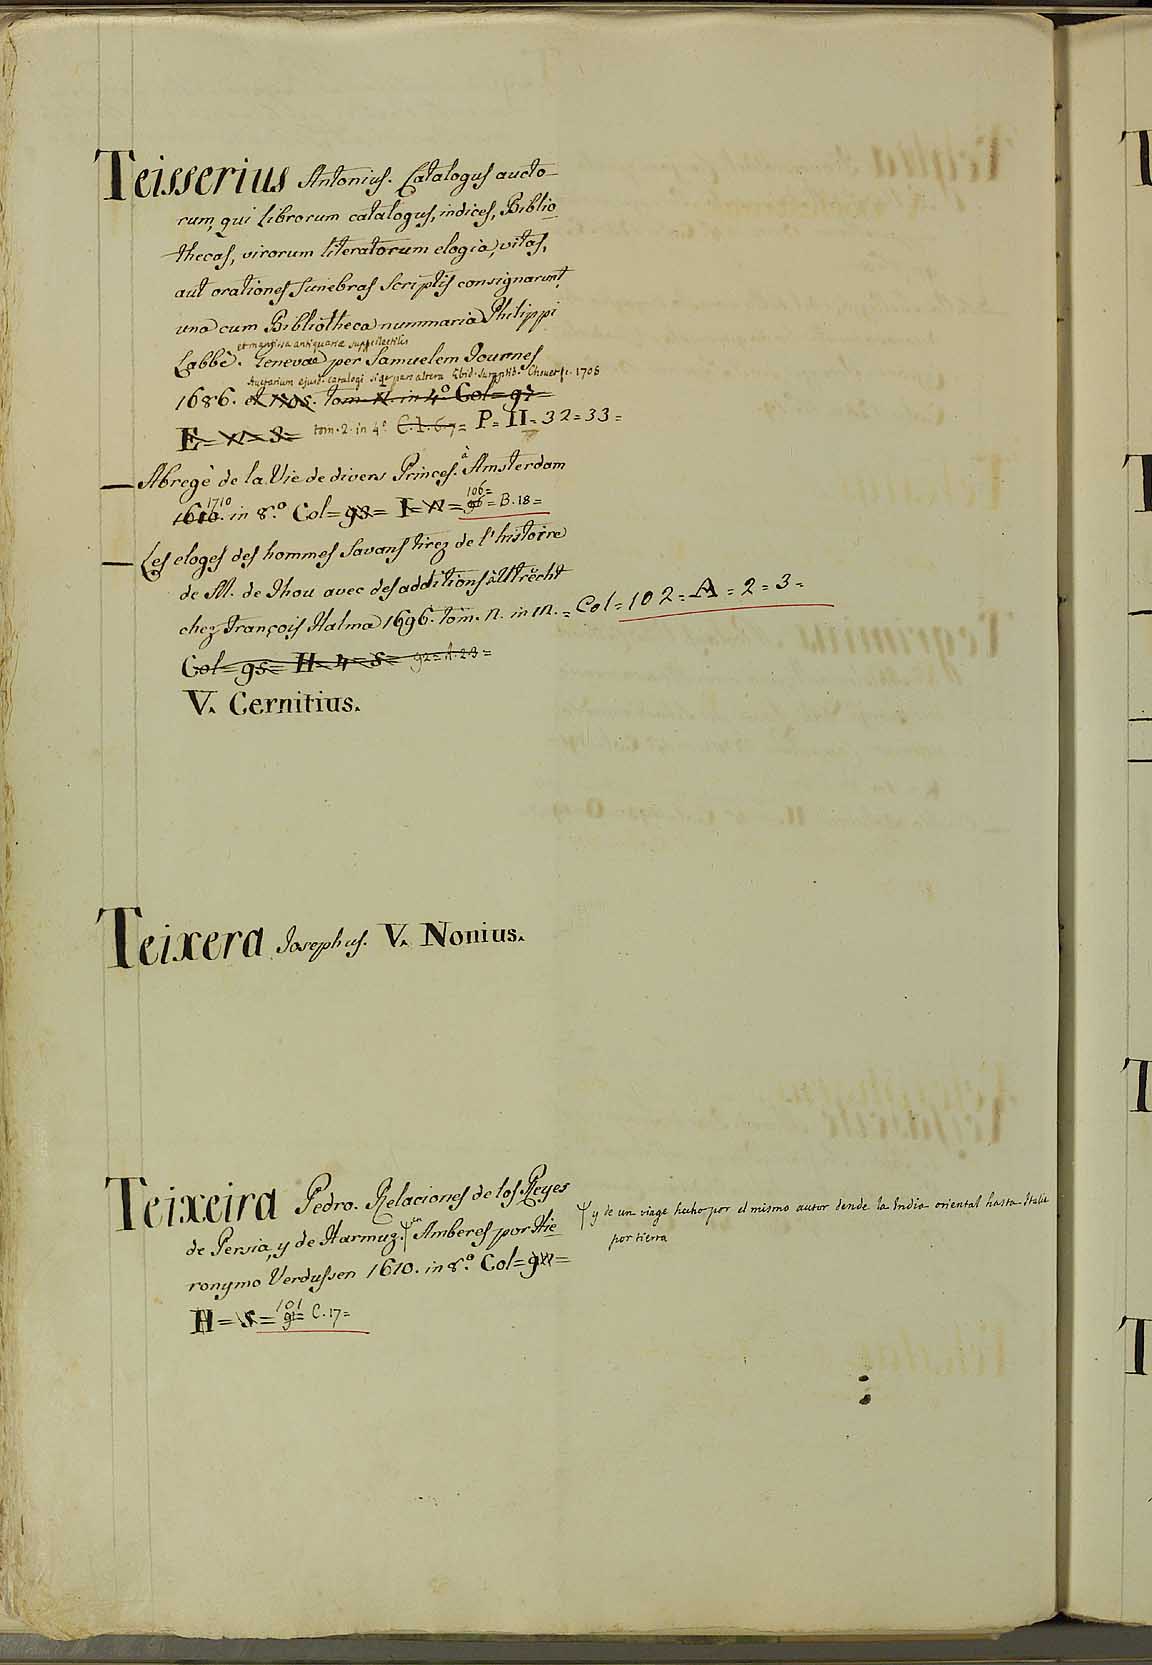 Teisserius Antonius. Catalogus aucto-
rum, qui librorum catalogus, indices, Biblio
thecas, virorum literatorum elogia, vitas,
aut orationes funebras scriptis consignarunt,
una cum Bibliotheca nummaria Philippi
et mantissa antiquariæ suppellectilis
Labbè. Genevae per Samuelem Tournes
Auctarium ejusd. catalogi sive pars altera Ibid. 1705
1686. et 1705. tom. II. in 4.o Col=
E= tom. 2. in 4.o C. I. 6. 7= P= II= 32=33=
Abregè de la Vie de divers Princes. à Amsterdam
1710
1610. in 8.o Col= I= 106= 96= B. 18=
Les eloges des hommes Savans tirez de l'histoire
de M. de Thou avec des additions à Utrecht
chez François Halma 1696. tom. II. in 12. = Col=102=A=2=3=
Col=95=H=4=S= 92=A.2.3=
V. Cernitius.
Teixera Josephus. V. Nonius.
Teixeira Pedro. Relaciones de los Reyes
de Persia, y de Harmuz. Ψ en Amberes por Hie
ronymo Verdussen 1610. in 8.o Col=
H=S= 101 91= C. 17=
Ψ y de un viage hecho por el mismo autor dende la India oriental hasta Italia
por tierra